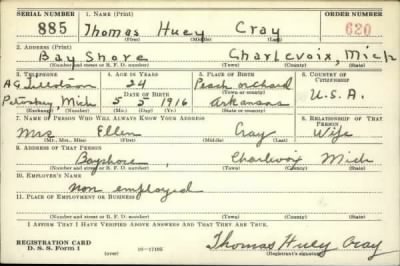 SERIAL NUMBER 1. NAME (Print) ORDER NUMBER
885 Thomas Huey Cray 620
(First) (Middle) (Last)
2. ADDRESS (Print)
Bay Shore Charlevoix, Mich
(Number and street or R. F. D. number) (Town) (County) (State)
3. TELEPHONE 4. AGE IN YEARS 5. PLACE OF BIRTH 6. COUNTRY OF CITIZENSHIP
AG 24 Peach orchard
DATE OF BIRTH (Town or county)
Petoskey, Mich 5 5 1916 Arkansas U.S.A.
(Exchange) (Number) (Mo.) (Day) (Yr.) (State or country)
7. NAME OF PERSON WHO WILL ALWAYS KNOW YOUR ADDRESS 8. RELATIONSHIP OF THAT PERSON
Mrs Ellen Cray Wife
(Mr., Mrs., Miss) (First) (Middle) (Last)
9. ADDRESS OF THAT PERSON
Bayshore, Charlvoix Mich
(Number and street or R. F. D. number) (Town) (County) (State)
10. EMPLOYER'S NAME
non employed
11. PLACE OF EMPLOYMENT OR BUSINESS
(Number and street or R. F. D. number) (Town) (County) (State)
I AFFIRM THAT I HAVE VERIFIED ABOVE ANSWERS AND THAT THEY ARE TRUE.
REGISTRATION CARD
D. S. S. Form 1 (over) 16-17105 Thomas Huey Cray
(Registrant's signature)